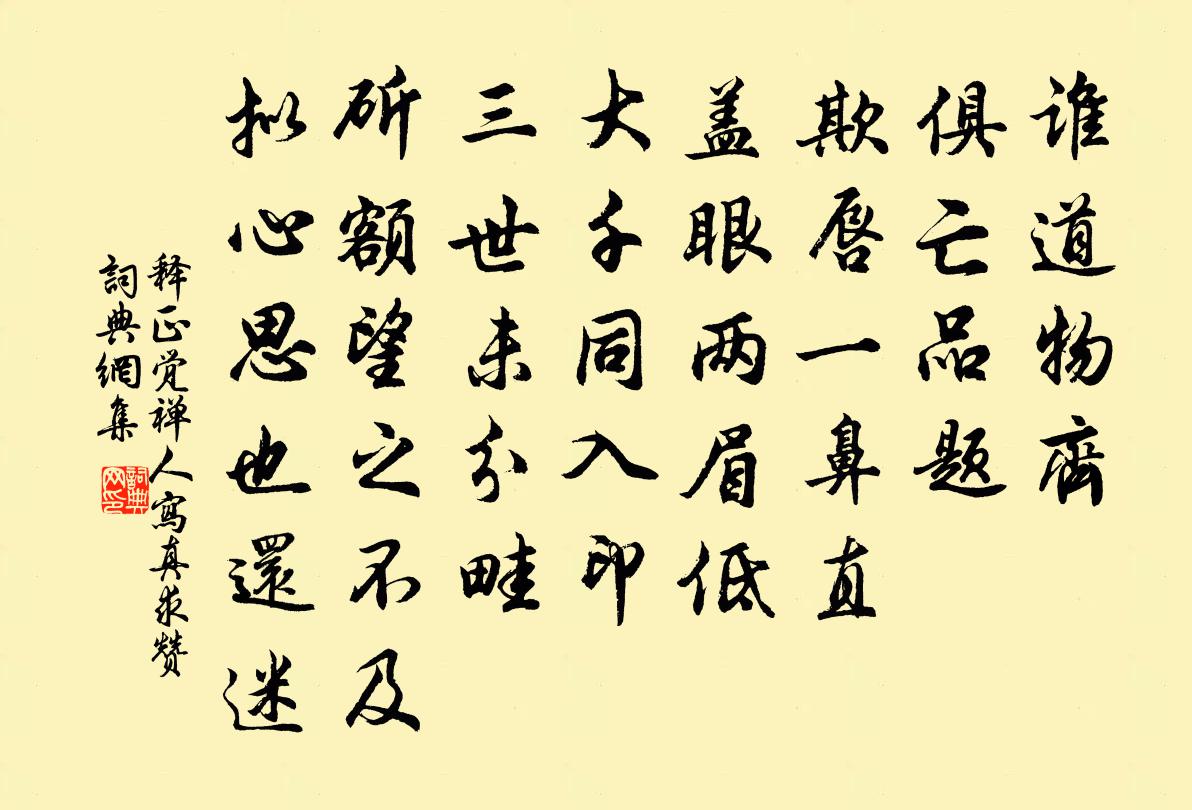 谁道物齊
俱亡品题
欺唇一鼻直
盖眼两眉低
大千同入印
三世未分畦
斫额望之不及
拟心思也還迷
释正觉禅人寫真求赞
詞典網集
詞典網印